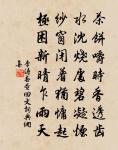 茶餅嚼時香透齒
水沈燒處碧凝煙
紗窗閉著猶慵起
極困新晴乍雨天